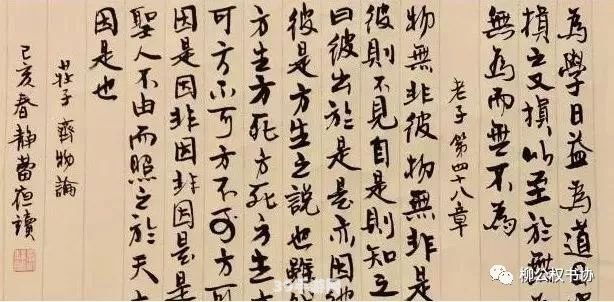 為學日益為道日
損之又損以至於無
無為而無不為
老子第四十八章
物無非彼物無非是
彼則不見自是則知之
曰彼出於是是亦因彼
彼是方生之說也雖然
方生方死方死方生
可方不可方不可方可
因是因非因非因是
聖人不由而照之於天
因是也
莊子齊物論
己亥春靜蕾夜讀
柳公权书协